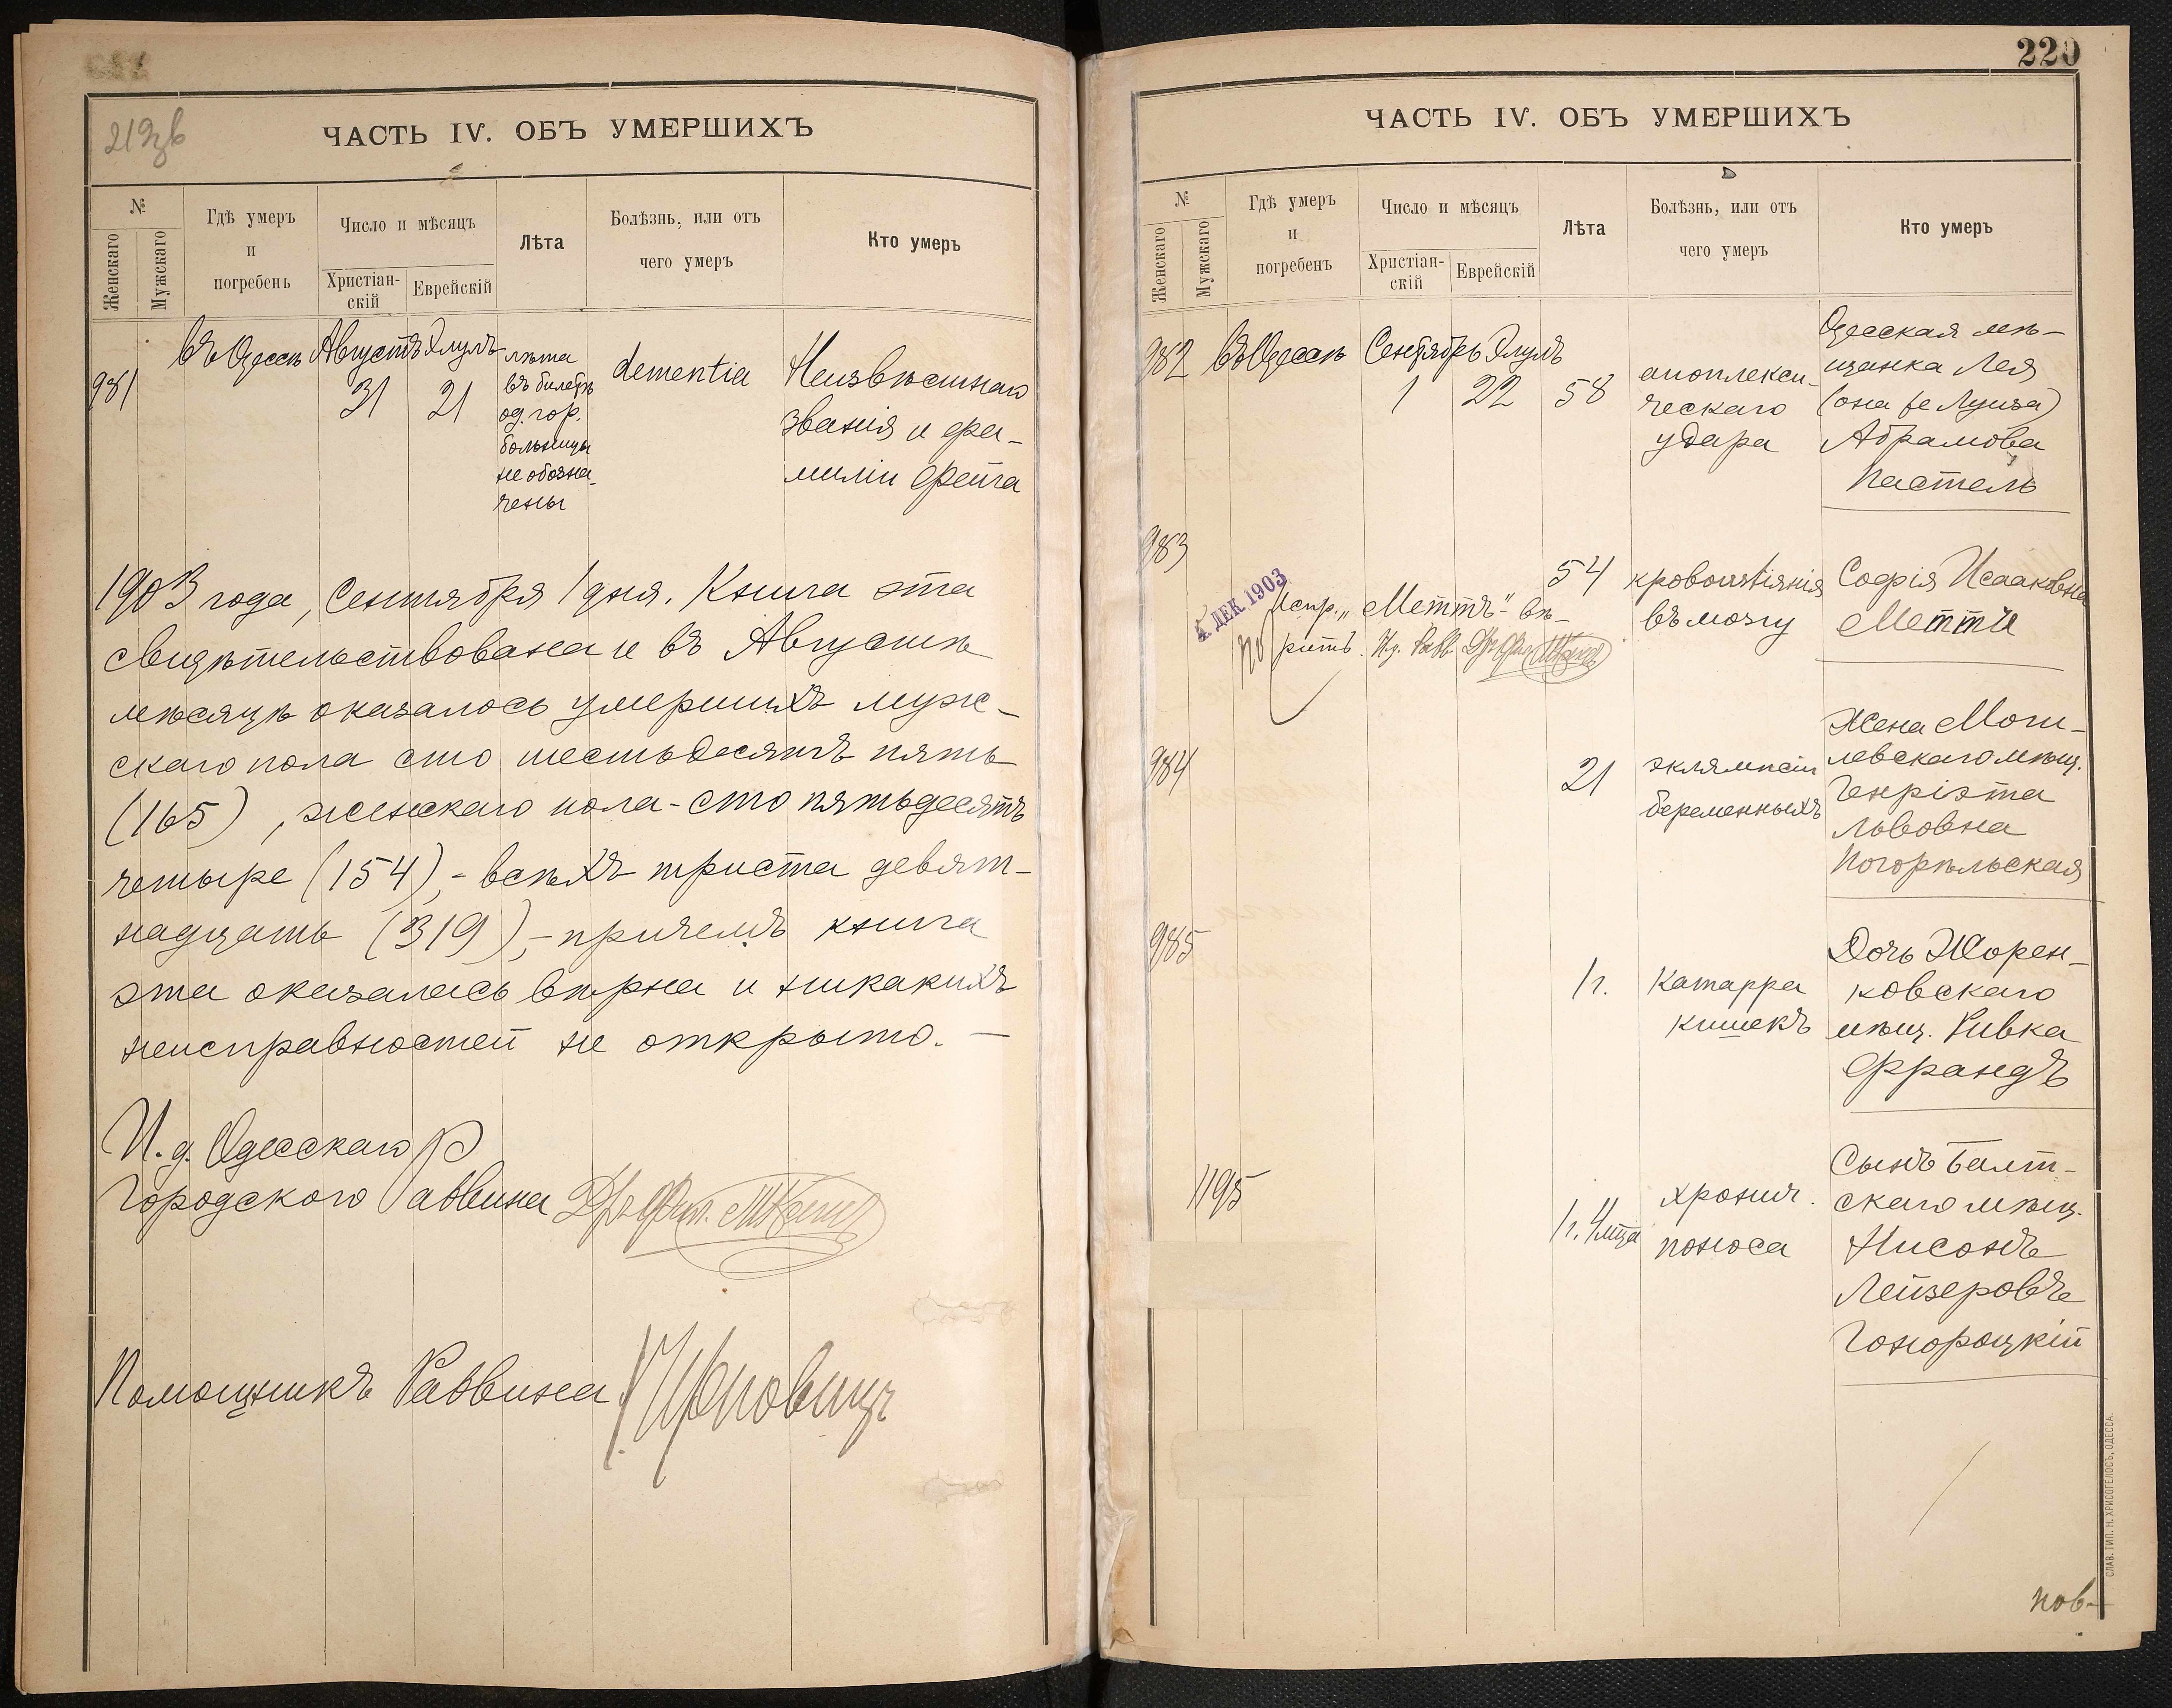 219 об
ЧАСТЬ IV. ОБЪ УМЕРШИХЪ
№
Женскаго
Мужскаго
Гдѣ умеръ
и
погребенъ
Число и мѣсяцъ
Христіан-
скій
Еврейскій
Лѣта
Болѣзнь, или отъ
чего умеръ
Кто умеръ
981
въ Одессѣ
Августъ
31
Элулъ
21
лѣта
въ билетѣ
од. гор.
больницы
не обозна-
чены
dementia
Неизвѣстнаго
званія и фа-
миліи Фейга
1903 года, Сентября 1 дня. Книга эта
свидѣтельствована и въ Августѣ
мѣсяцѣ оказалось умершихъ муж-
скаго пола сто шестьдесятъ пять
(165), женскаго пола - сто пятьдесятъ
четыре (154), - всѣхъ триста девят-
надцать (319), - причемъ книга
эта оказалась вѣрна и никакихъ
неисправностей не открыто. -
И. д. Одесскаго
Городского Раввина
Помощникъ Раввина
220
ЧАСТЬ IV. ОБЪ УМЕРШИХЪ
№
Женскаго
Мужскаго
Гдѣ умеръ
и
погребенъ
Число и мѣсяцъ
Христіан-
скій
Еврейскій
Лѣта
Болѣзнь, или отъ
чего умеръ
Кто умеръ
982
въ Одессѣ
Сентябрь
1
Элулъ
22
58
апоплекси-
ческаго
удара
Одесская мѣ-
щанка Лея
(она же Луиза)
Абрамова
Пастель
983
54
кровоизліянія
въ мозгу
Софія Исааковна
Метти
4 ДЕК 1903
Испр. „Меттъ" вѣ-
рить.
984
21
эклямпсіи
беременныхъ
Жена Моги-
левскаго мѣщ.
Генріэта
Львовна
Погорѣльская
985
1 г.
Катарра
кишекъ
Дочь Жорен-
ковскаго
мѣщ. Ривка
Франдъ
1195
1 г. 4 мца
хронич.
поноса
Сынъ Балт-
скаго мѣщ.
Нисонъ
Лейзеровъ
Гонороцкій
СЛАВ. ТИП. Н. ХРИСОГЕЛОСЪ, ОДЕССА.